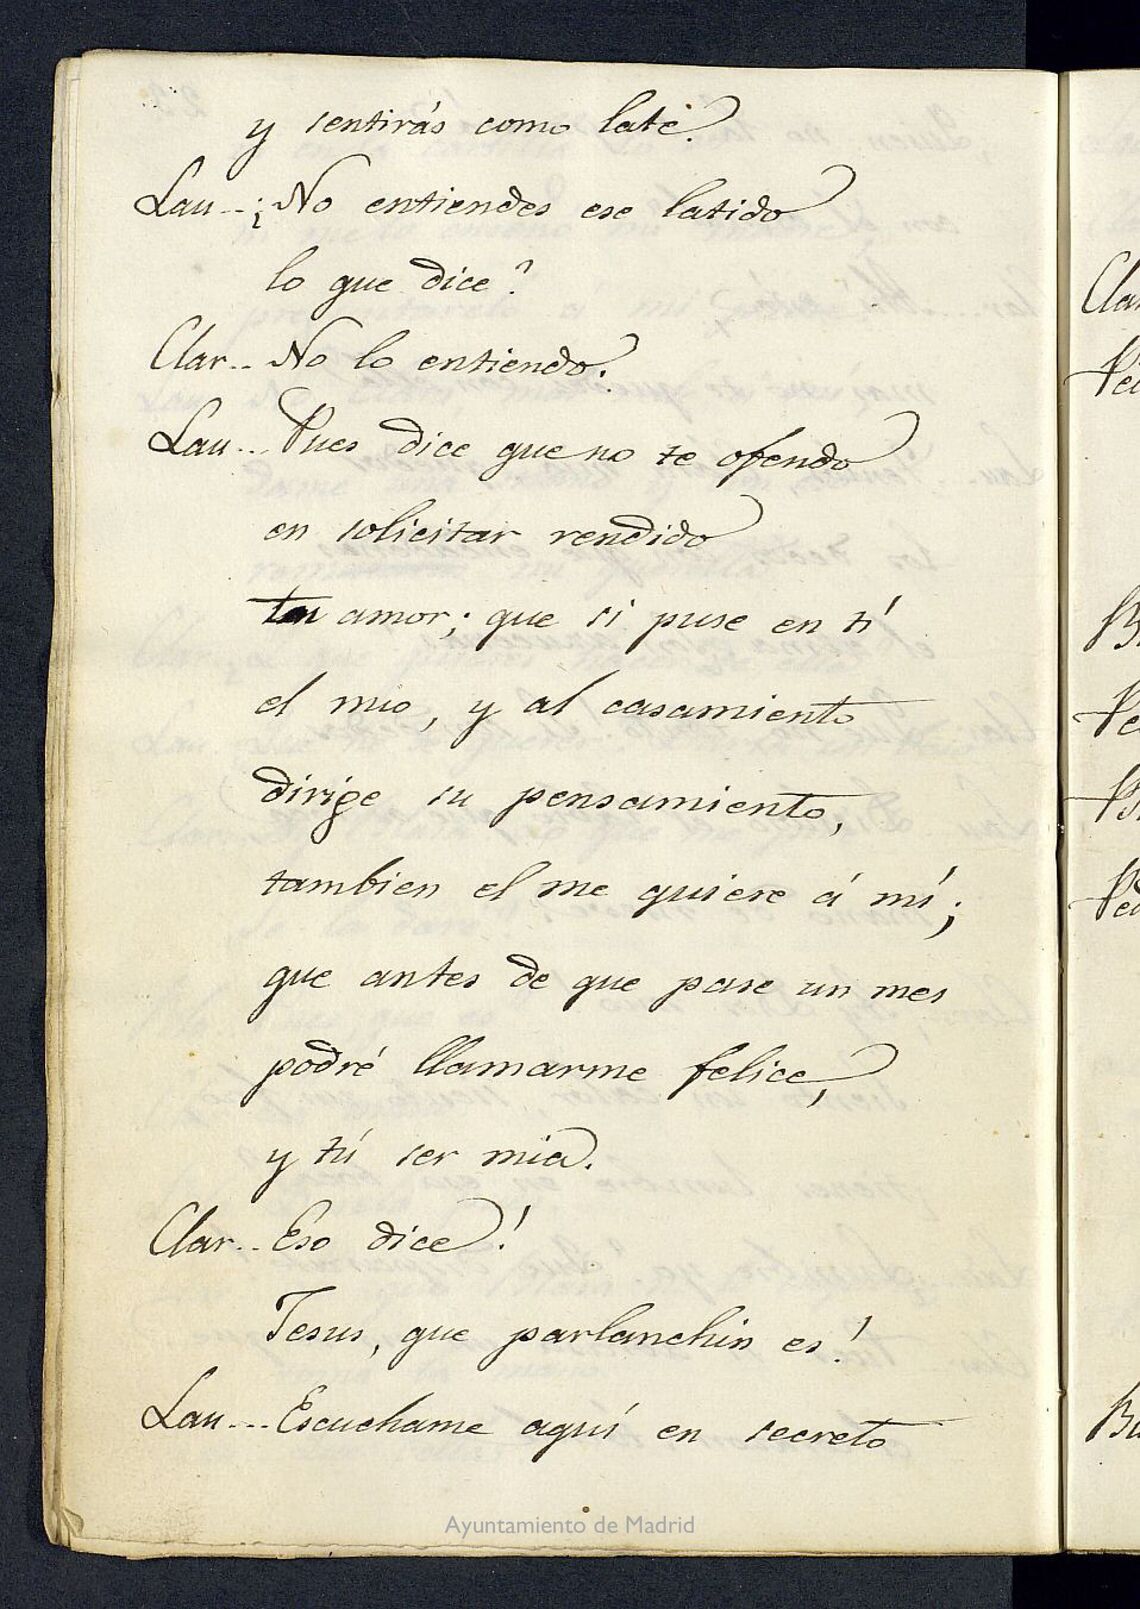 y sentirás como late.
Lau... ¿No entiendes ese latido
lo que dice?
Clar.. No lo entiendo.
Lau... Pues dice que no te ofendo
en solicitar rendido
tu amor; que si puse en tí
el mio, y al casamiento
dirige su pensamiento,
tambien el me quiere á mí;
que antes de que pase un mes
podré llamarme felice,
y tú ser mia.
Clar.. Eso dice!
Jesus, que parlanchin es!
Lau... Escuchame aquí en secreto
Ayuntamiento de Madrid